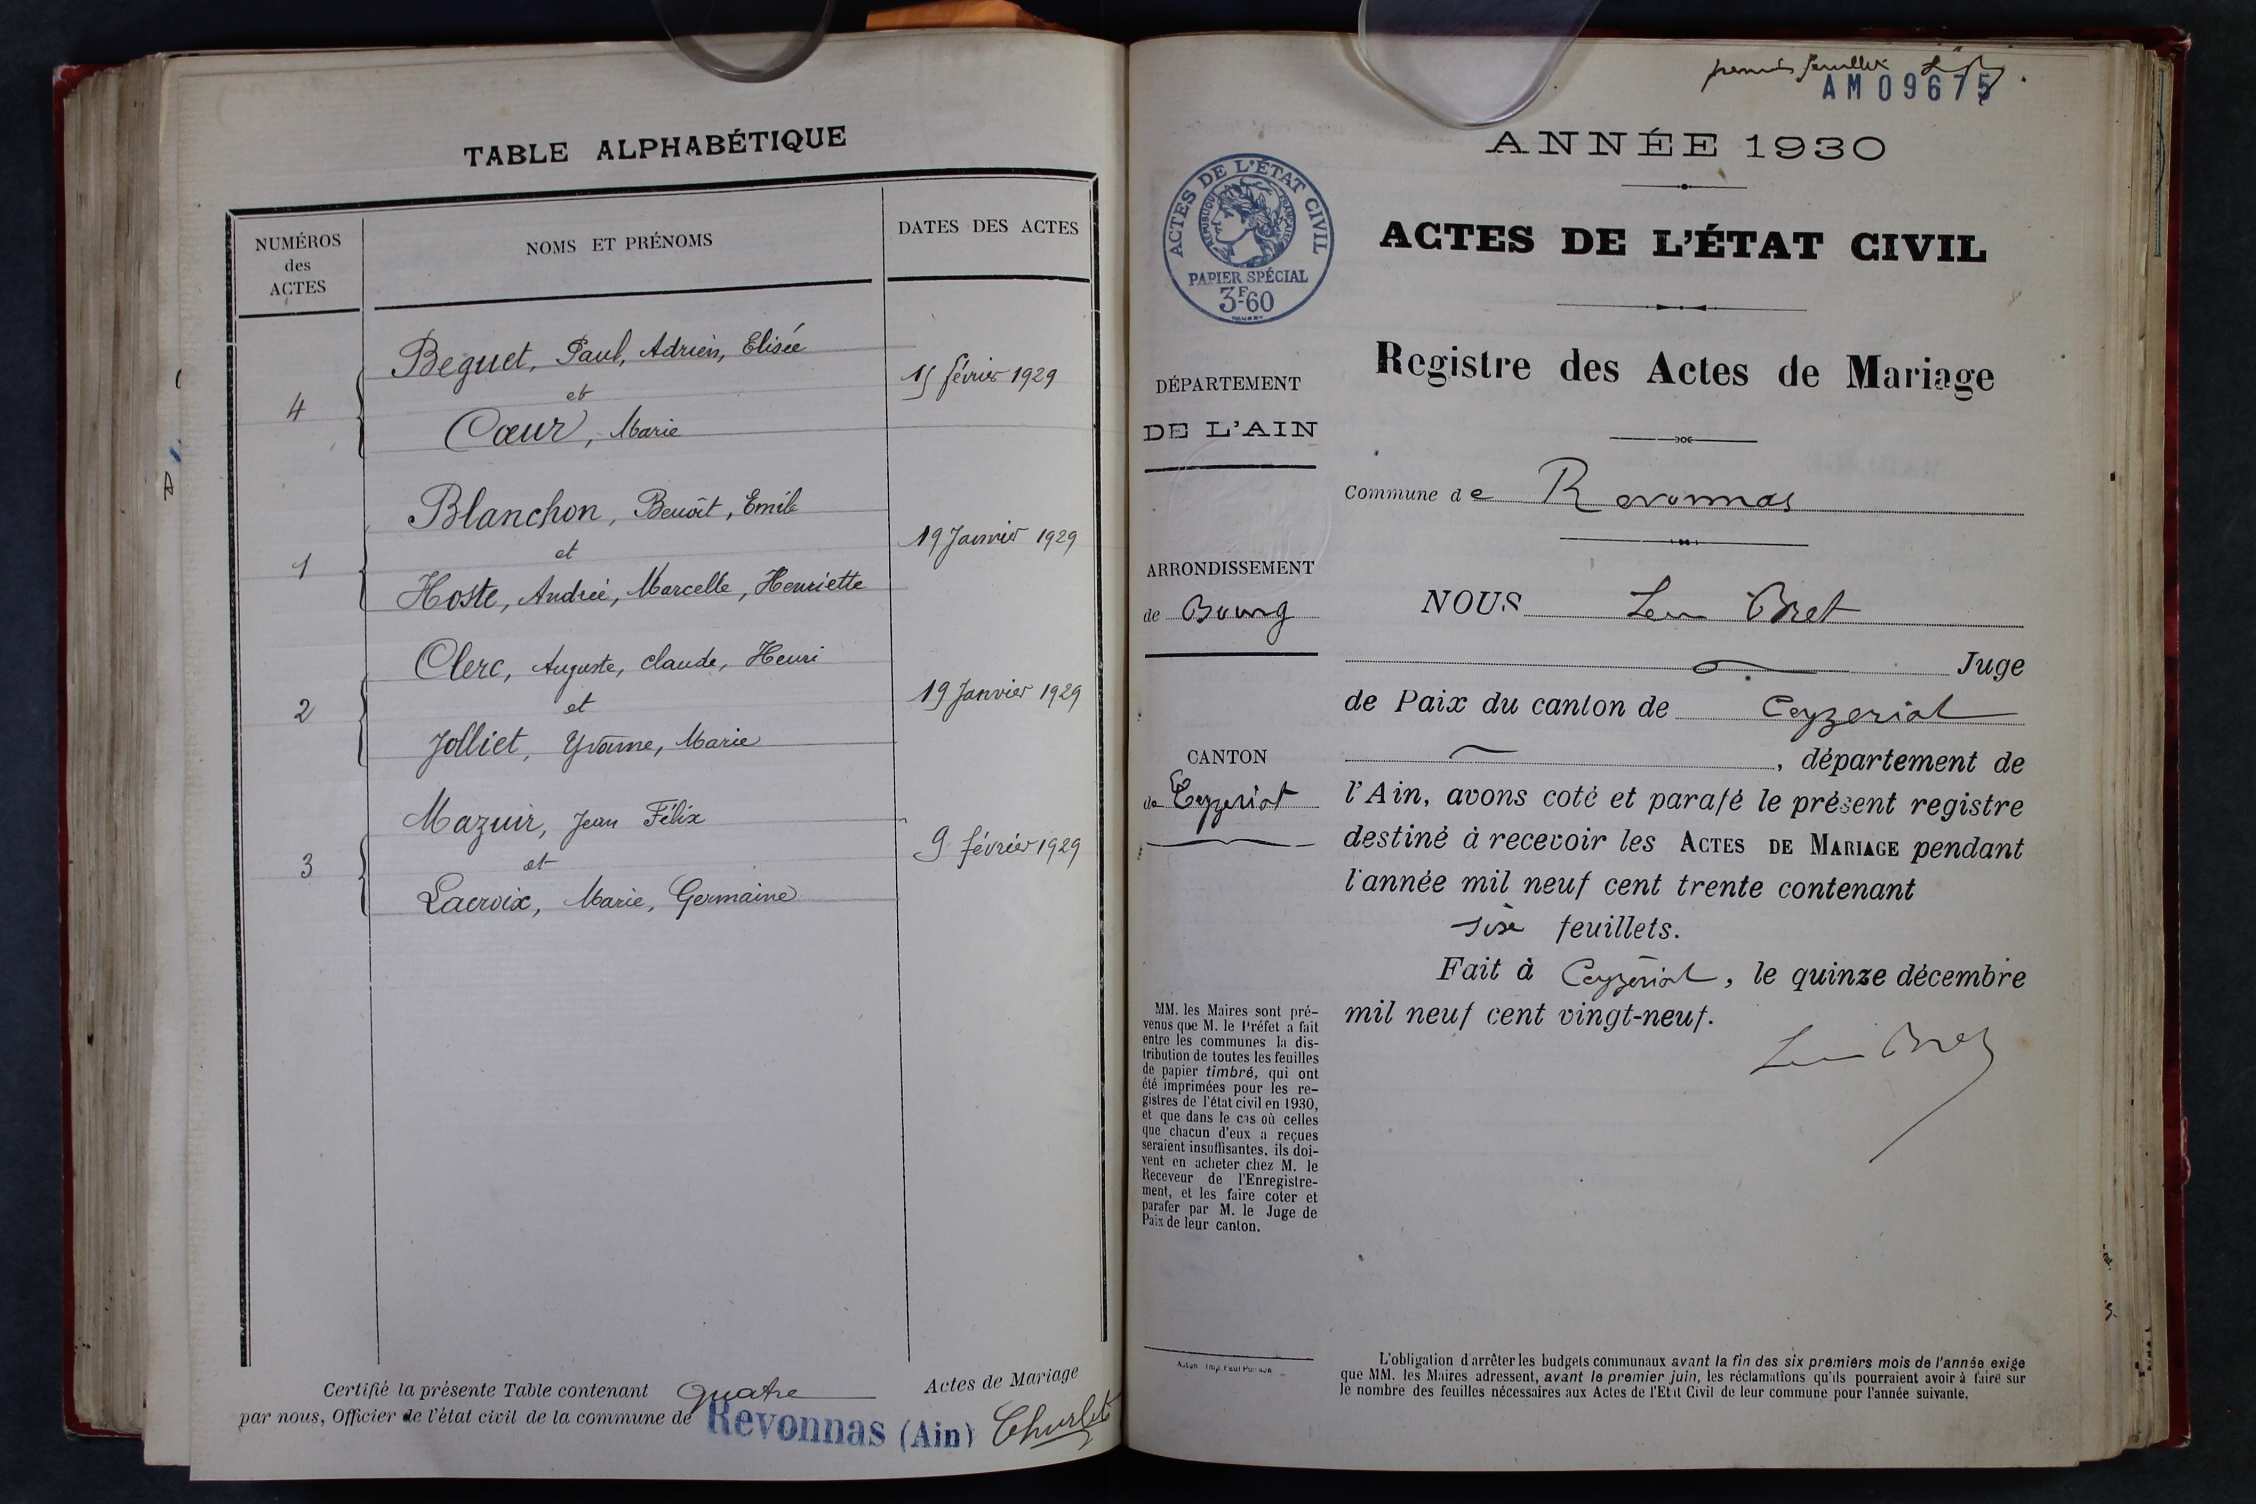 TABLE ALPHABÉTIQUE
NUMÉROS
des
ACTES
NOMS ET PRÉNOMS
DATES DES ACTES
Beguet, Paul, Adrien, Elisée
4
et
15 février 1929
Cœur, Marie
Blanchon, Benoit, Emile
1
et
19 Janvier 1929
Hoste, Andrée, Marcelle, Henriette
Clerc, Auguste, Claude, Henri
2
et
19 Janvier 1929
Jolliet, Yvonne, Marie
Mazuir, Jean Félix
3
et
9 février 1929
Lacroix, Marie, Germaine
Certifié la présente Table contenant quatre Actes de Mariage
par nous, Officier de l'état civil de la commune de Revonnas (Ain)
premier feuillet
AM 09675
ANNÉE 1930
ACTES DE L'ÉTAT CIVIL
RÉPUBLIQUE FRANÇAISE
PAPIER SPÉCIAL
3F60
ACTES DE L'ÉTAT CIVIL
Registre des Actes de Mariage
DÉPARTEMENT
DE L'AIN
Commune de Revonnas
ARRONDISSEMENT
de Bourg
CANTON
de Ceyzeriat
NOUS Léon Bret
Juge
de Paix du canton de Ceyzeriat
, département de
l'Ain, avons coté et parafé le présent registre
destiné à recevoir les ACTES DE MARIAGE pendant
l'année mil neuf cent trente contenant
six feuillets.
Fait à Ceyzériat, le quinze décembre
mil neuf cent vingt-neuf.
Léon Bret
MM. les Maires sont pré-
venus que M. le Préfet a fait
entre les communes la dis-
tribution de toutes les feuilles
de papier timbré, qui ont
été imprimées pour les re-
gistres de l'état civil en 1930,
et que dans le cas où celles
que chacun d'eux a reçues
seraient insuffisantes, ils doi-
vent en acheter chez M. le
Receveur de l'Enregistre-
ment, et les faire coter et
parafer par M. le Juge de
Paix de leur canton.
L'obligation d'arrêter les budgets communaux avant la fin des six premiers mois de l'année exige
que MM. les Maires adressent, avant le premier juin, les réclamations qu'ils pourraient avoir à faire sur
le nombre des feuilles nécessaires aux Actes de l'Etat Civil de leur commune pour l'année suivante.